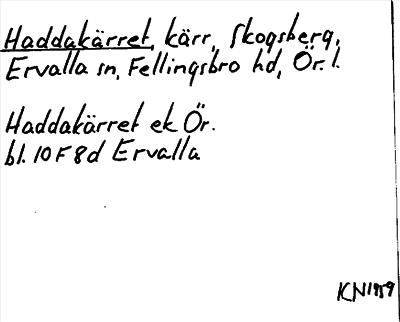 Haddakärret, kärr, Skogsberg,
Ervalla sn, Fellingsbro hd, Ör. l.
Haddakärret ek Ör.
bl. 10 F 8 d Ervalla
KN 1959